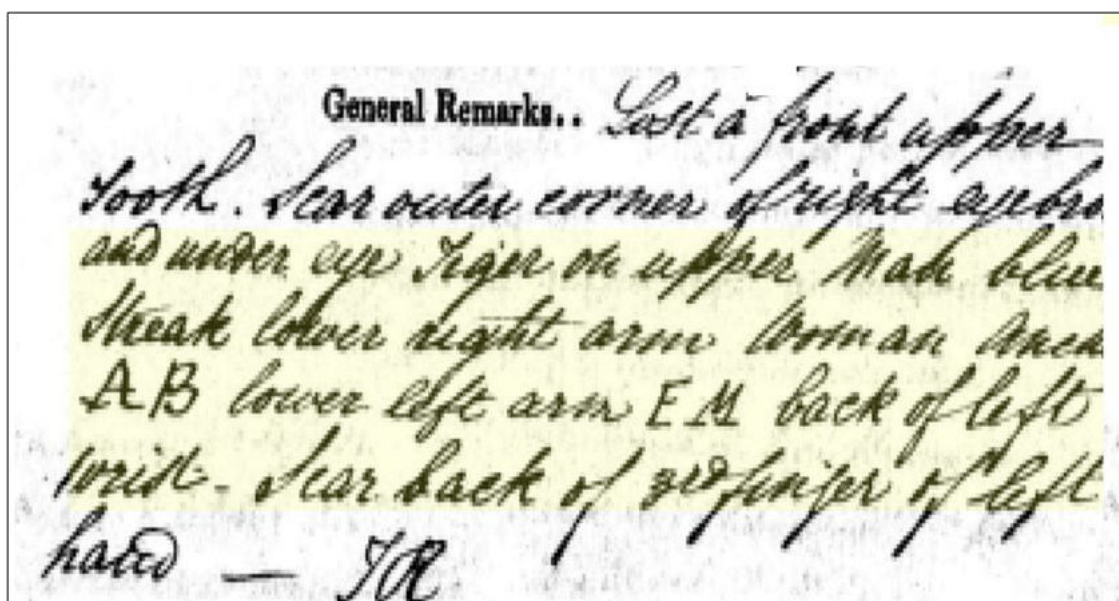 General Remarks.. Lost a front upper
Tooth. Scar outer corner of right eyebro
and under eye Tiger on upper Man blue
Streak lower right arm Woman Anch
A B lower left arm E M back of left
wrist - Scar back of 3rd finger of left
hand — T R